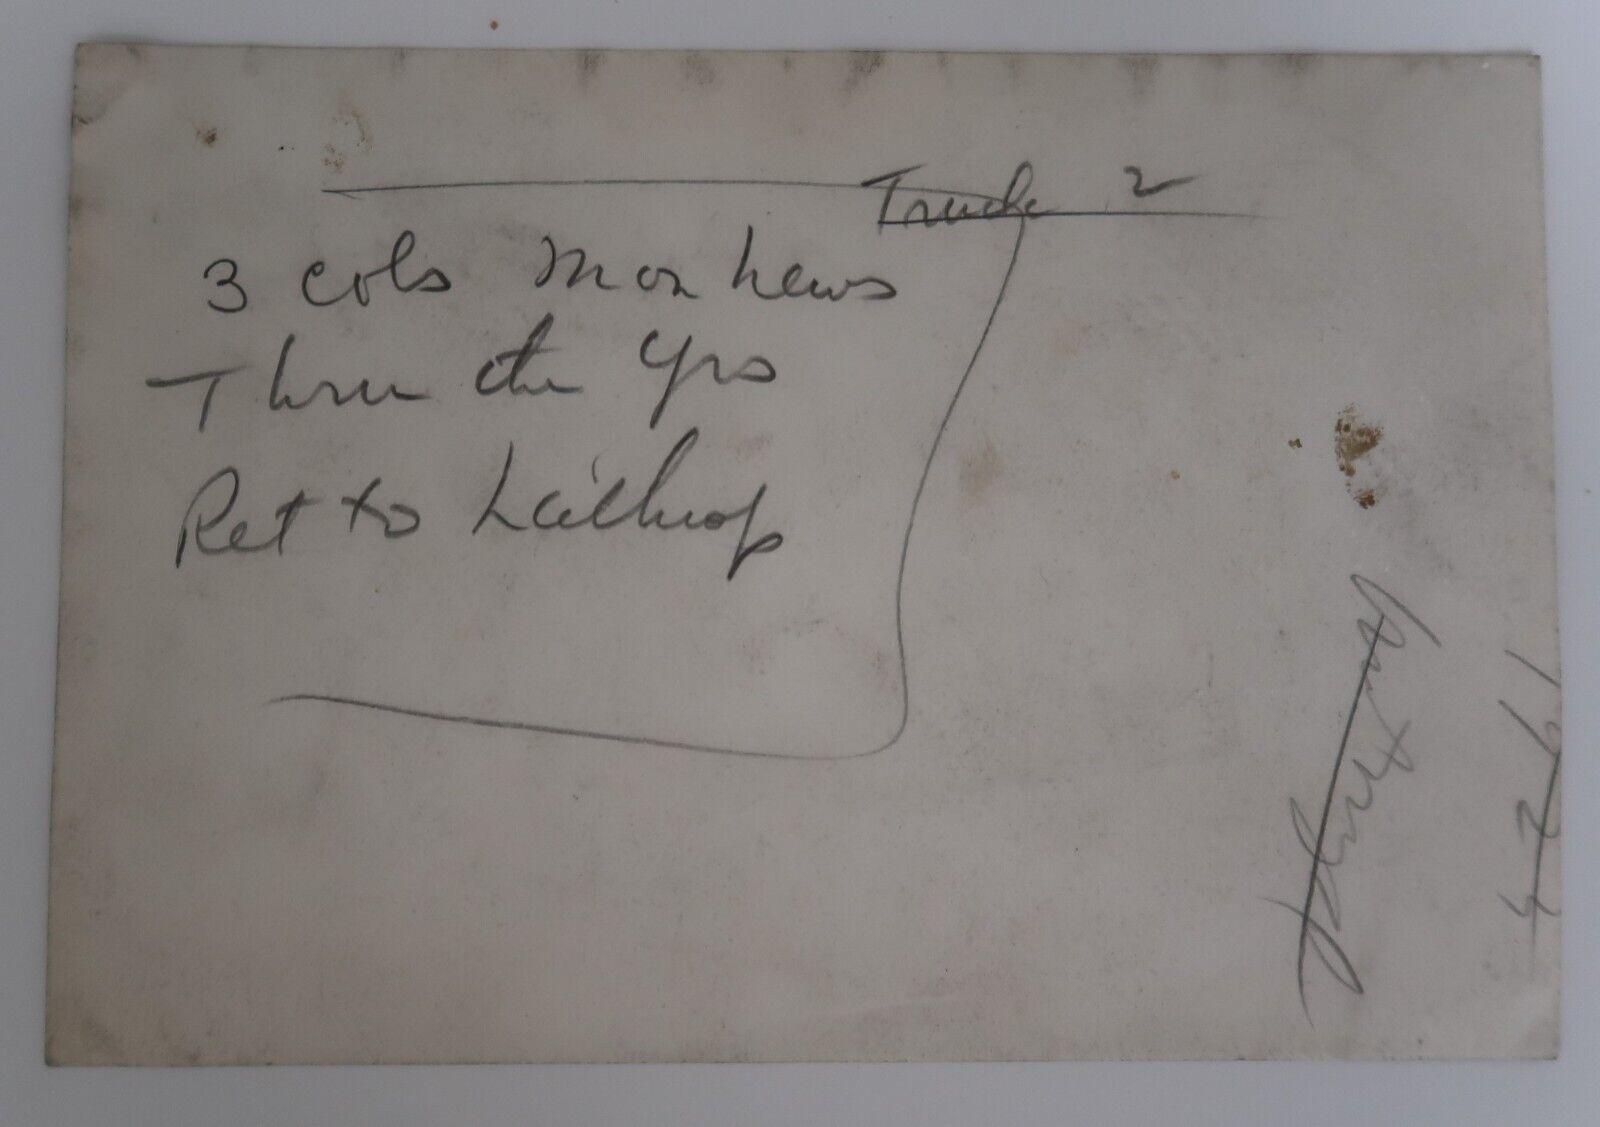 Truck 2
3 cols Mon News
Thru the Yrs
Ret to Laithrop